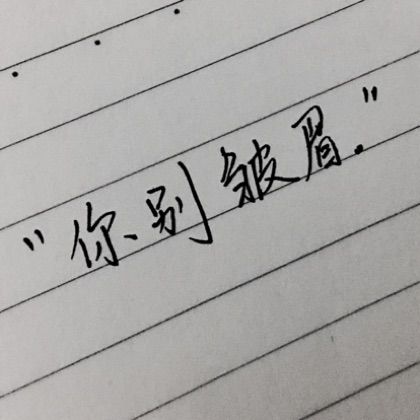 "你别皱眉."